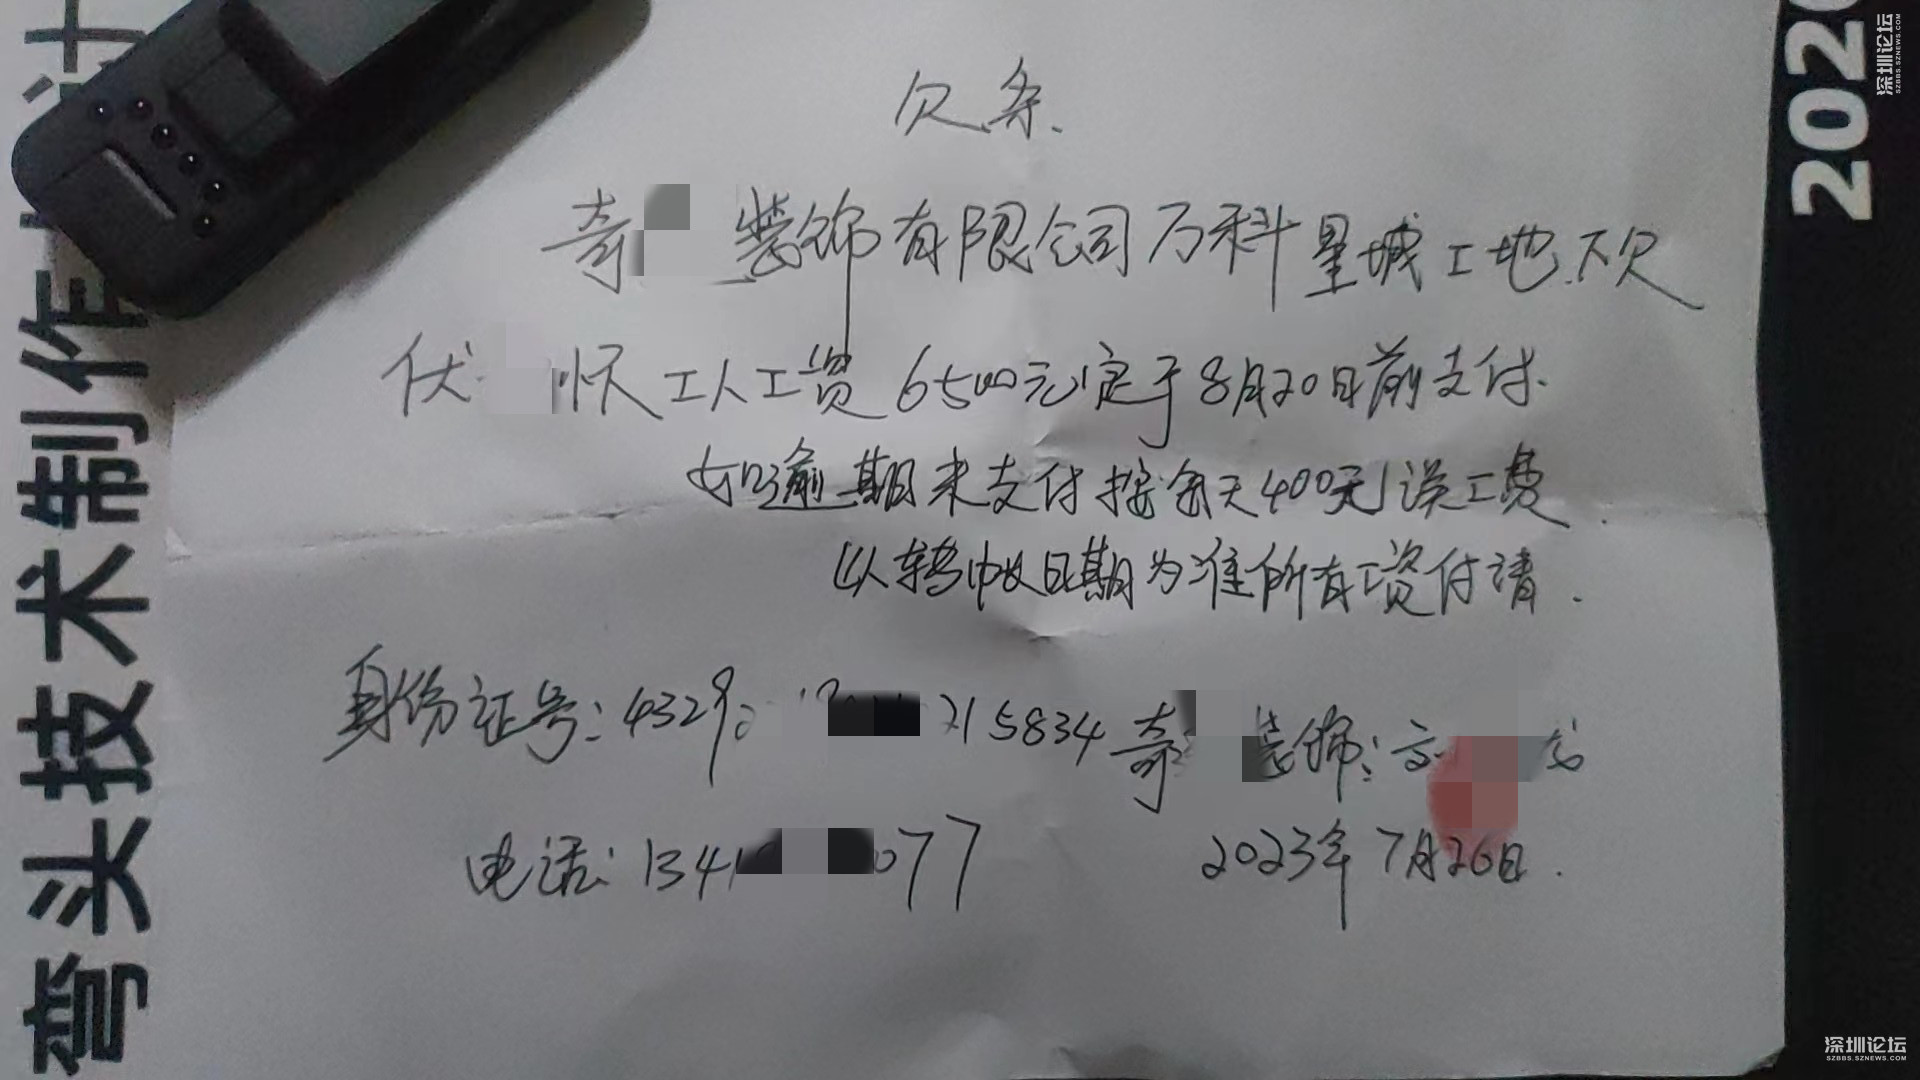 欠条.
奇 装饰有限公司万科星城工地下欠
伏 怀工人工资6500元定于8月20日前支付.
如逾期未支付按每天400元误工费.
以转帐日期为准所有工资付请.
身份证号:4329 215834 奇 装饰:
电话:1341 077 2023年7月26日.
弯头技术制作
202
深圳论坛
SZBBS.SZNEWS.COM
深圳论坛
SZBBS.SZNEWS.COM